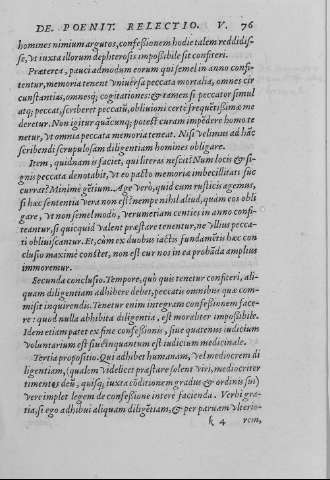 DE. POENIT. RELECTIO. V. 76
homines nimium argutos, confeßionem hodie talem reddidis-
se, vt iuxta illorum dephterosis impoßibile sit confiteri.
Præterea, pauci admodum eorum qui semel in anno confi-
tentur, memoria tenent vniuersa peccata mortalia, omnes cir
cunstantias, omnesq; cogitationes: & tamen si peccator simul
atq; peccat, scriberet peccatũ, obliuioni certè frequẽtißimæ me
deretur. Non igitur quãcunq; potest curam impẽdere homo te
netur, vt omnia peccata memoria teneat. Nisi velimus ad hãc
scribendi scrupulosam diligentiam homines obligare.
Item, quidnam is faciet, qui literas nescit? Num locis & si-
gnis peccata denotabit, vt eo pacto memoriæ imbecillitati suc
currat? Minimè gẽtium. Age verò, quid cum rusticis agemus,
si hæc sententia vera non est? nempe nihil aliud, quàm eos obli
gare, vt non semel modò, verumetiam centies in anno confi-
teantur, si quicquid valent præstare tenentur, ne vllius pecca-
ti obliuiscantur. Et, cùm ex duobus iactis fundamẽtis hæc con
clusio maximè constet, non est cur nos in ea probãda amplius
immoremur.
Secunda conclusio. Tempore, quò quis tenetur confiteri, ali-
quam diligentiam adhibere debet, peccatis omnibus quæ com-
misit inquirendis. Tenetur enim integram confeßionem face-
re: quod nulla adhibita diligentia, est moraliter impoßibile.
Idem etiam patet ex fine confeßionis, siue quatenus iudicium
voluntarium est siue quantum est iudicium medicinale.
Tertia propositio. Qui adhibet humanam, vel mediocrem di
ligentiam, (qualem videlicet præstare solent viri, mediocriter
timentes deũ, quisq; iuxta cõditionem gradus & ordinis sui)
verè implet legem de confeßione integrè facienda. Verbi gra-
tia, si ego adhibui aliquam diligẽtiam, & per paruam vlterio-
k 4 rem,